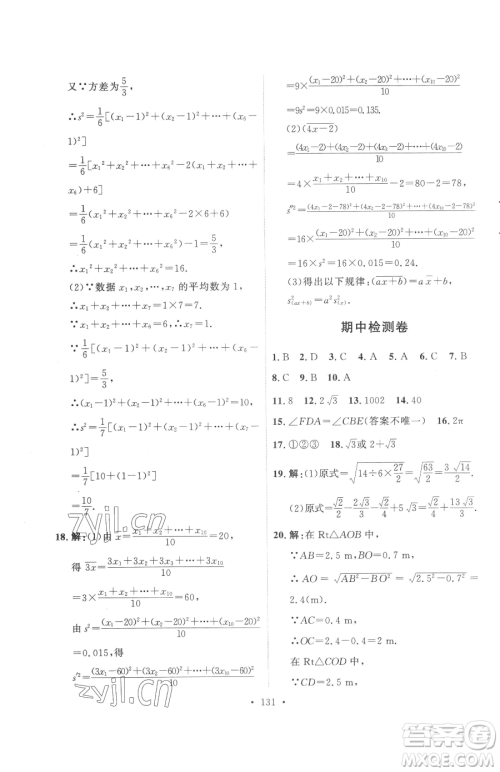 又∵方差为5/3，
∴s²=1/6[(x₁−1)²+(x₂−1)²+⋯+(x₆−
1)²]
=1/6[x₁²+x₂²+⋯+x₆²−2(x₁+x₂+⋯+
x₆)+6]
=1/6(x₁²+x₂²+⋯+x₆²−2×6+6)
=1/6(x₁²+x₂²+⋯+x₆²)−1=5/3，
∴x₁²+x₂²+⋯+x₆²=16.
(2)∵数据 x₁，x₂，⋯，x₇ 的平均数为 1，
∴x₁+x₂+⋯+x₇=1×7=7.
∵x₁+x₂+⋯+x₆=6，∴x₇=1.
∵1/6[(x₁−1)²+(x₂−1)²+⋯+(x₆−
1)²]=5/3，
∴(x₁−1)²+(x₂−1)²+⋯+(x₆−1)²=10，
∴s²=1/7[(x₁−1)²+(x₂−1)²+⋯+(x₇−
1)²]
=1/7[10+(1−1)²]
=10/7.
18.解:(1)由x̄=(x₁+x₂+⋯+x₁₀)/10=20，
得3x̄=(3x₁+3x₂+⋯+3x₁₀)/10
=3×(x₁+x₂+⋯+x₁₀)/10=60.
由 s²=((x₁−20)²+(x₂−20)²+⋯+(x₁₀−20)²)/10
=0.015，得
s′²=((3x₁−60)²+(3x₂−60)²+⋯+(3x₁₀−60)²)/10
=9×((x₁−20)²+(x₂−20)²+⋯+(x₁₀−20)²)/10
=9s²=9×0.015=0.135.
(2)(4x−2)
=((4x₁−2)+(4x₂−2)+⋯+(4x₁₀−2))/10
=4×(x₁+x₂+⋯+x₁₀)/10−2=80−2=78，
s″²=((4x₁−2−78)²+⋯+(4x₁₀−2−78)²)/10
=16×((x₁−20)²+(x₂−20)²+⋯+(x₁₀−20)²)/10
=16s²=16×0.015=0.24.
(3)得出以下规律:(ax+b)=ax̄+b，
s²(ax+b)=a²s²(x).
期中检测卷
1. B 2. D 3. C 4. C 5. B 6. B 7. B
8. C 9. B 10. A
11. 8 12. 2√3 13. 1002 14. 40
15. ∠FDA=∠CBE(答案不唯一) 16. 2π
17. ①②③ 18. √3或2√3
19.解:(1)原式=√(14÷6×27/2)=√(63/2)=3√14/2
20.解:在 Rt△AOB 中，
∵AB=2.5 m，BO=0.7 m，
∴AO=√(AB²−BO²)=√(2.5²−0.7²)=
2.4(m).
∵AC=0.4 m，
∴OC=2 m.
在 Rt△COD 中，
∵CD=2.5 m，
· 131 ·
zyjl.cn
zyjl.cn
答案圈
MXQE.COM